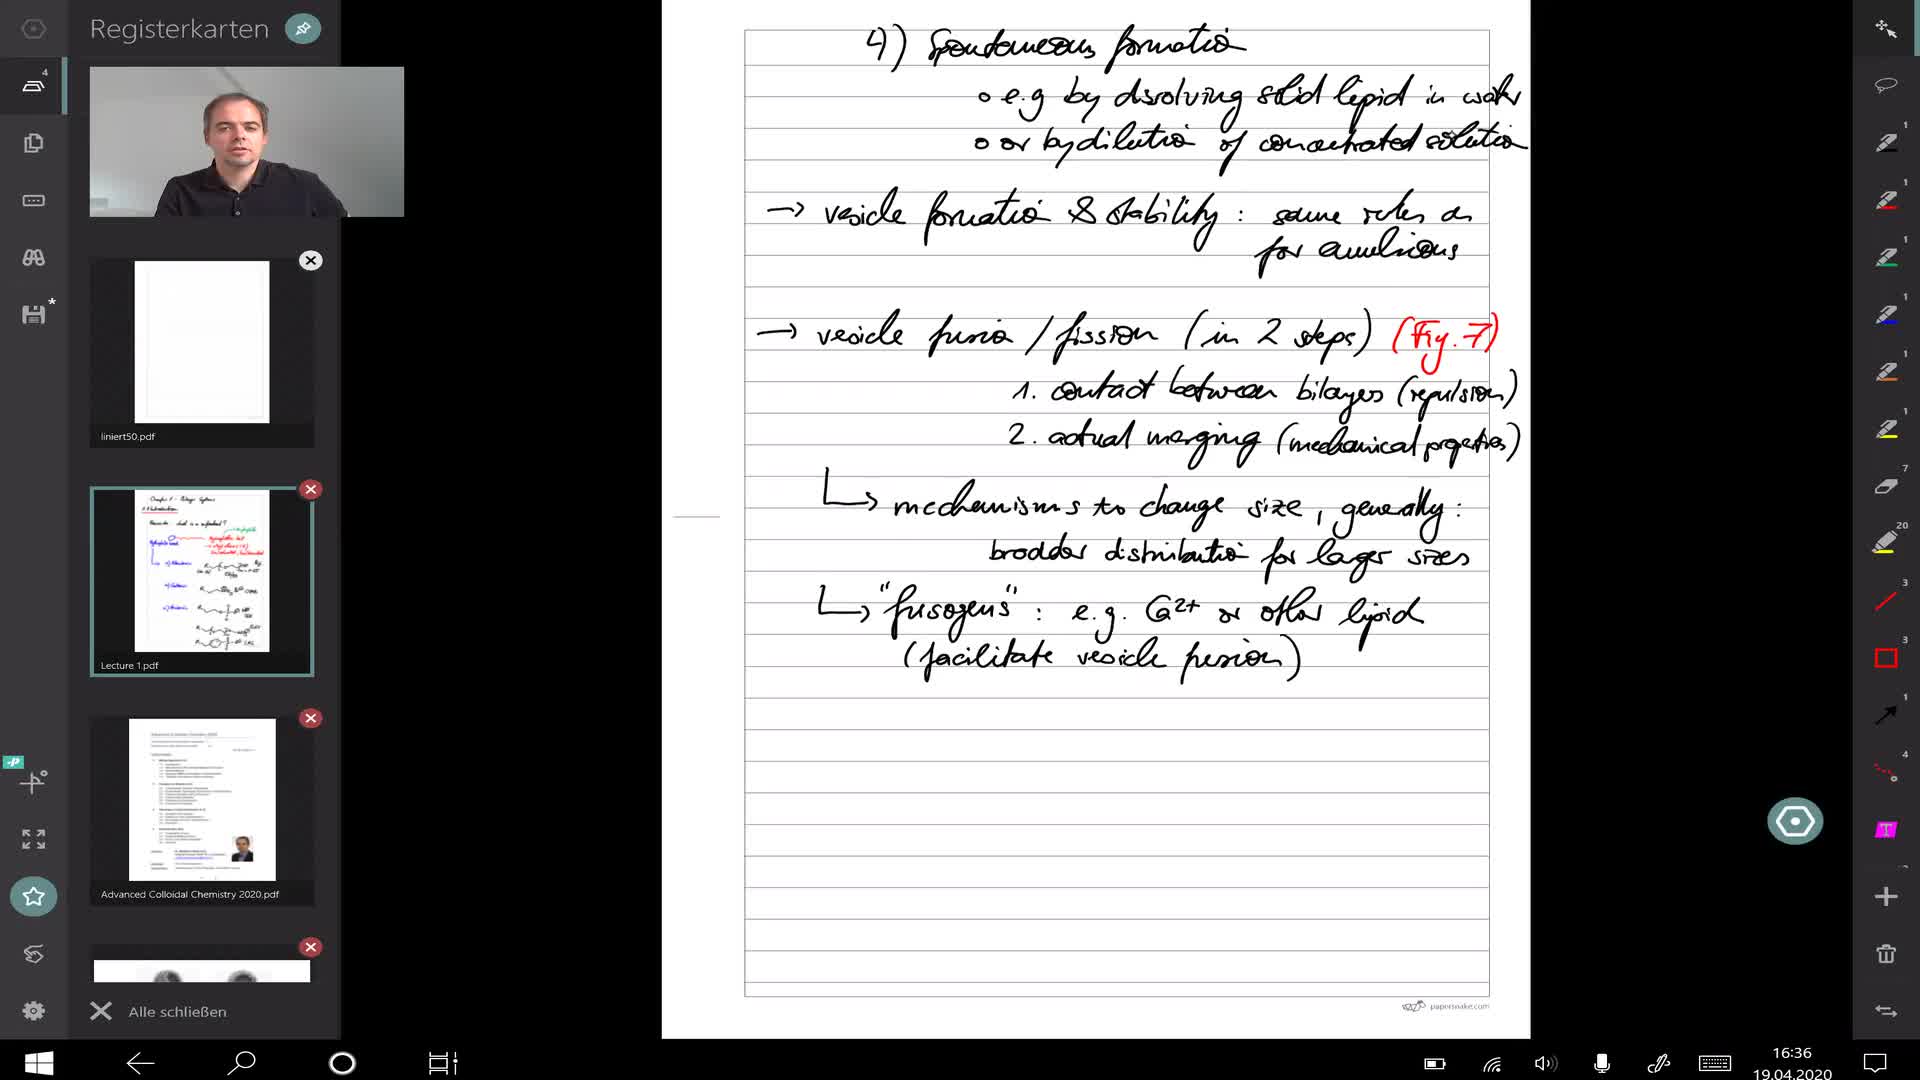 Registerkarten
4
liniert50.pdf
Lecture 1.pdf
Advanced Colloidal Chemistry 2020
Advanced Colloidal Chemistry 2020.pdf
Alle schließen
4) Spontaneous formation
o e.g by dissolving solid lipid in water
o or by dilution of concentrated solution
→ vesicle formation & stability : same rules as
for emulsions
→ vesicle fusion / fission (in 2 steps) (Fig. 7)
1. contact between bilayers (repulsion)
2. actual merging (mechanical properties)
↳ mechanisms to change size, generally :
broader distribution for larger sizes
↳ "fusogens" : e.g. Ca2+ or other lipid
(facilitate vesicle fusion)
papersnake.com
1
1
1
1
1
1
7
20
3
3
1
4
T
16:36
19.04.2020